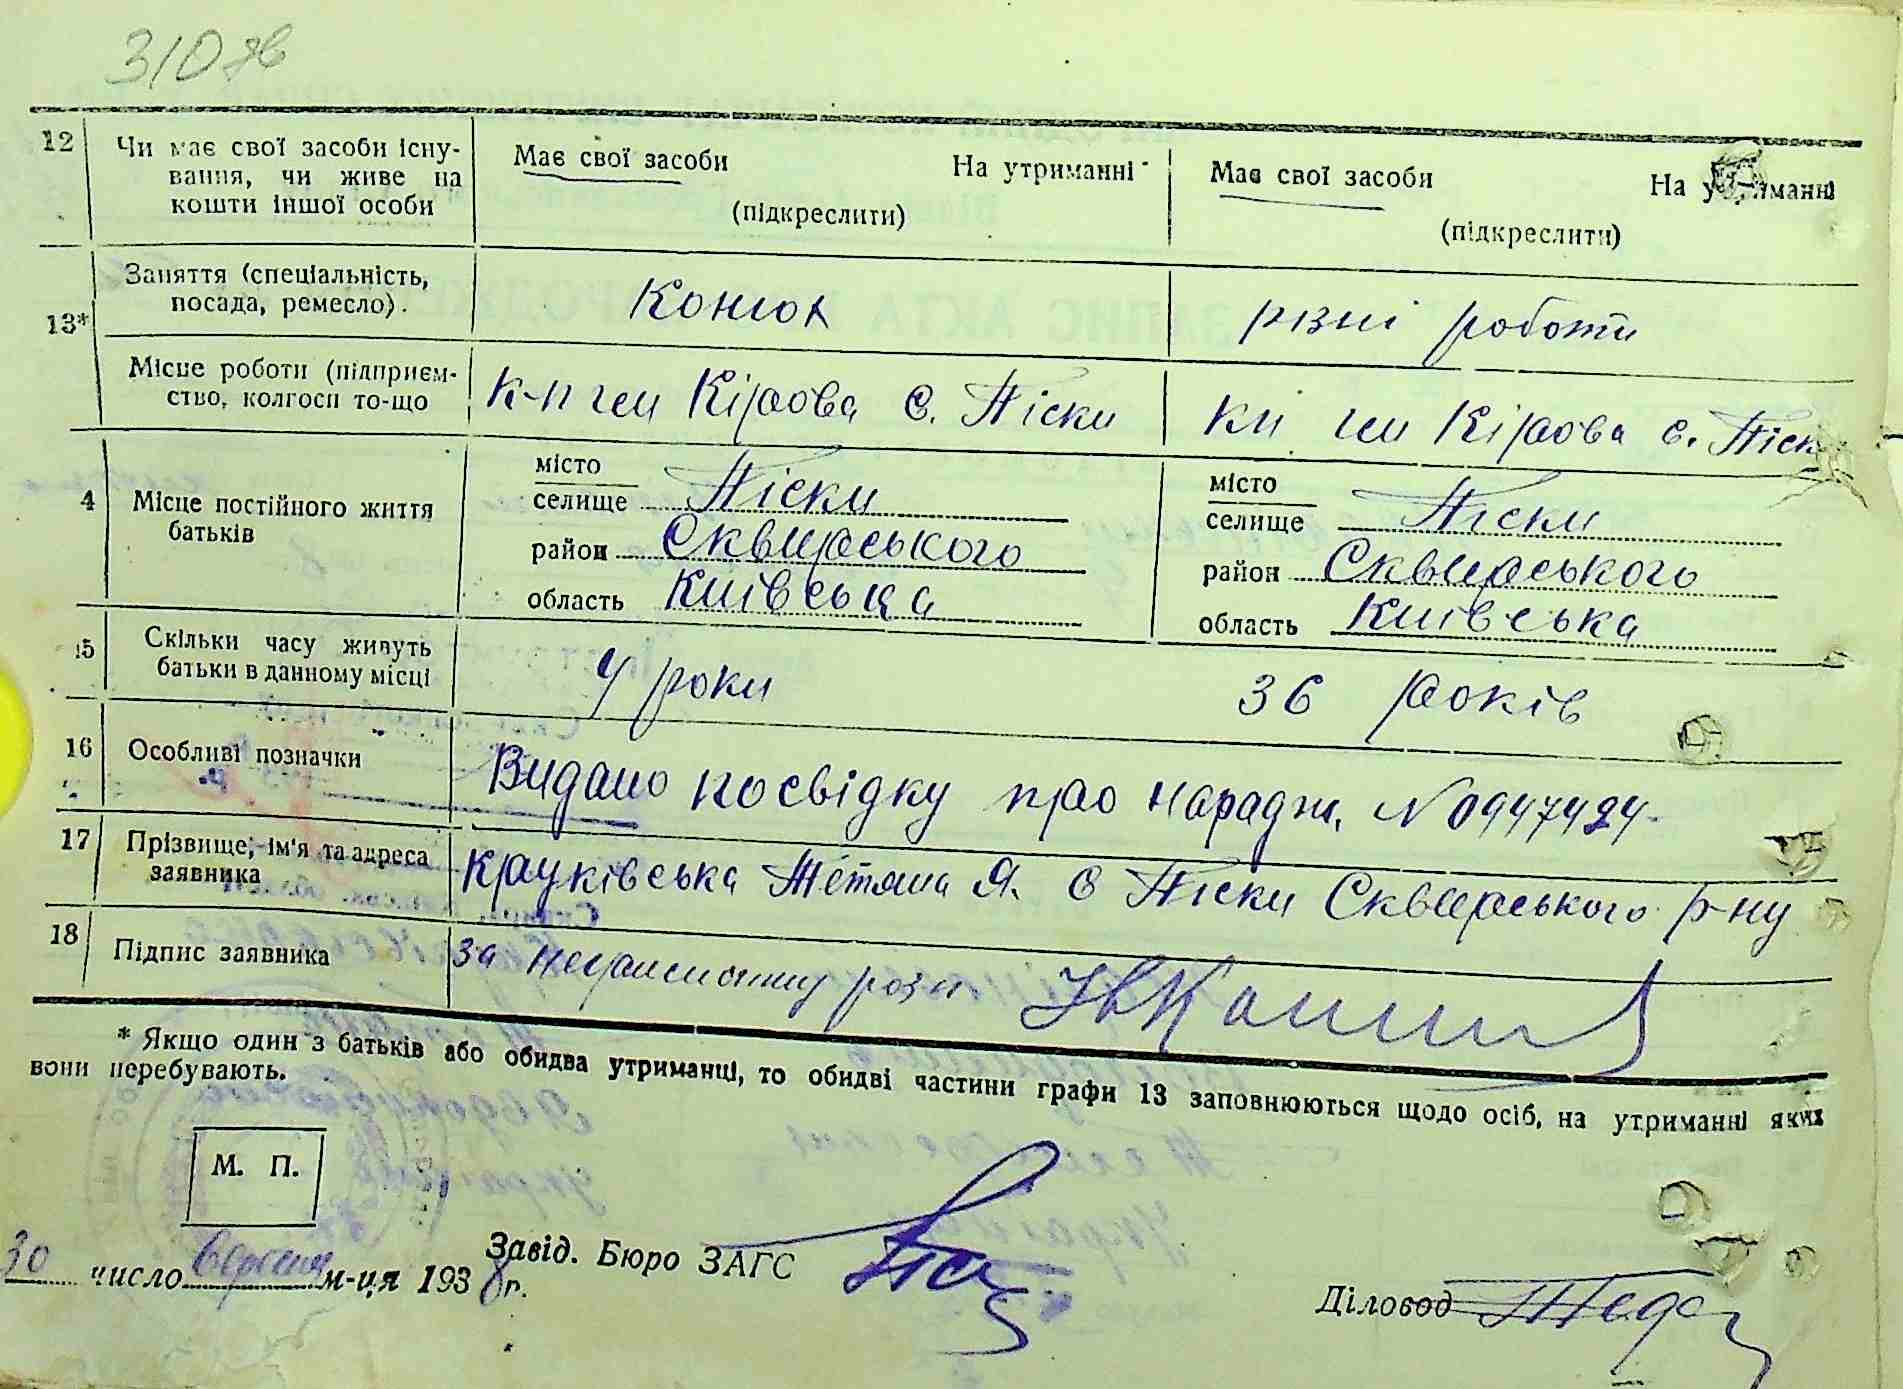 310 зв
12 Чи має свої засоби існу- Має свої засоби На утриманні Має свої засоби На утриманні
вання, чи живе на
кошти іншої особи (підкреслити) (підкреслити)
13* Заняття (спеціальність, Конюх різні роботи
посада, ремесло).
Місце роботи (підприєм- К-п ім Кірова с. Піски Кп ім Кірова с. Піски
ство, колгосп то-що
4 Місце постійного життя місто місто
батьків селище Піски селище Піски
район Сквирського район Сквирського
область Київська область Київська
15 Скільки часу живуть 4 роки 36 років
батьки в данному місці
16 Особливі позначки Видано посвідку про народж. N 0947424
17 Прізвище, ім'я та адреса Круківська Тетяна Я. с Піски Сквирського р-ну
заявника
18 Підпис заявника за неграмотну розп
* Якщо один з батьків або обидва утриманці, то обидві частини графи 13 заповнюються щодо осіб, на утриманні яких
вони перебувають.
М. П.
30 число Серпня м-ця 1938 г. Завід. Бюро ЗАГС
Діловод